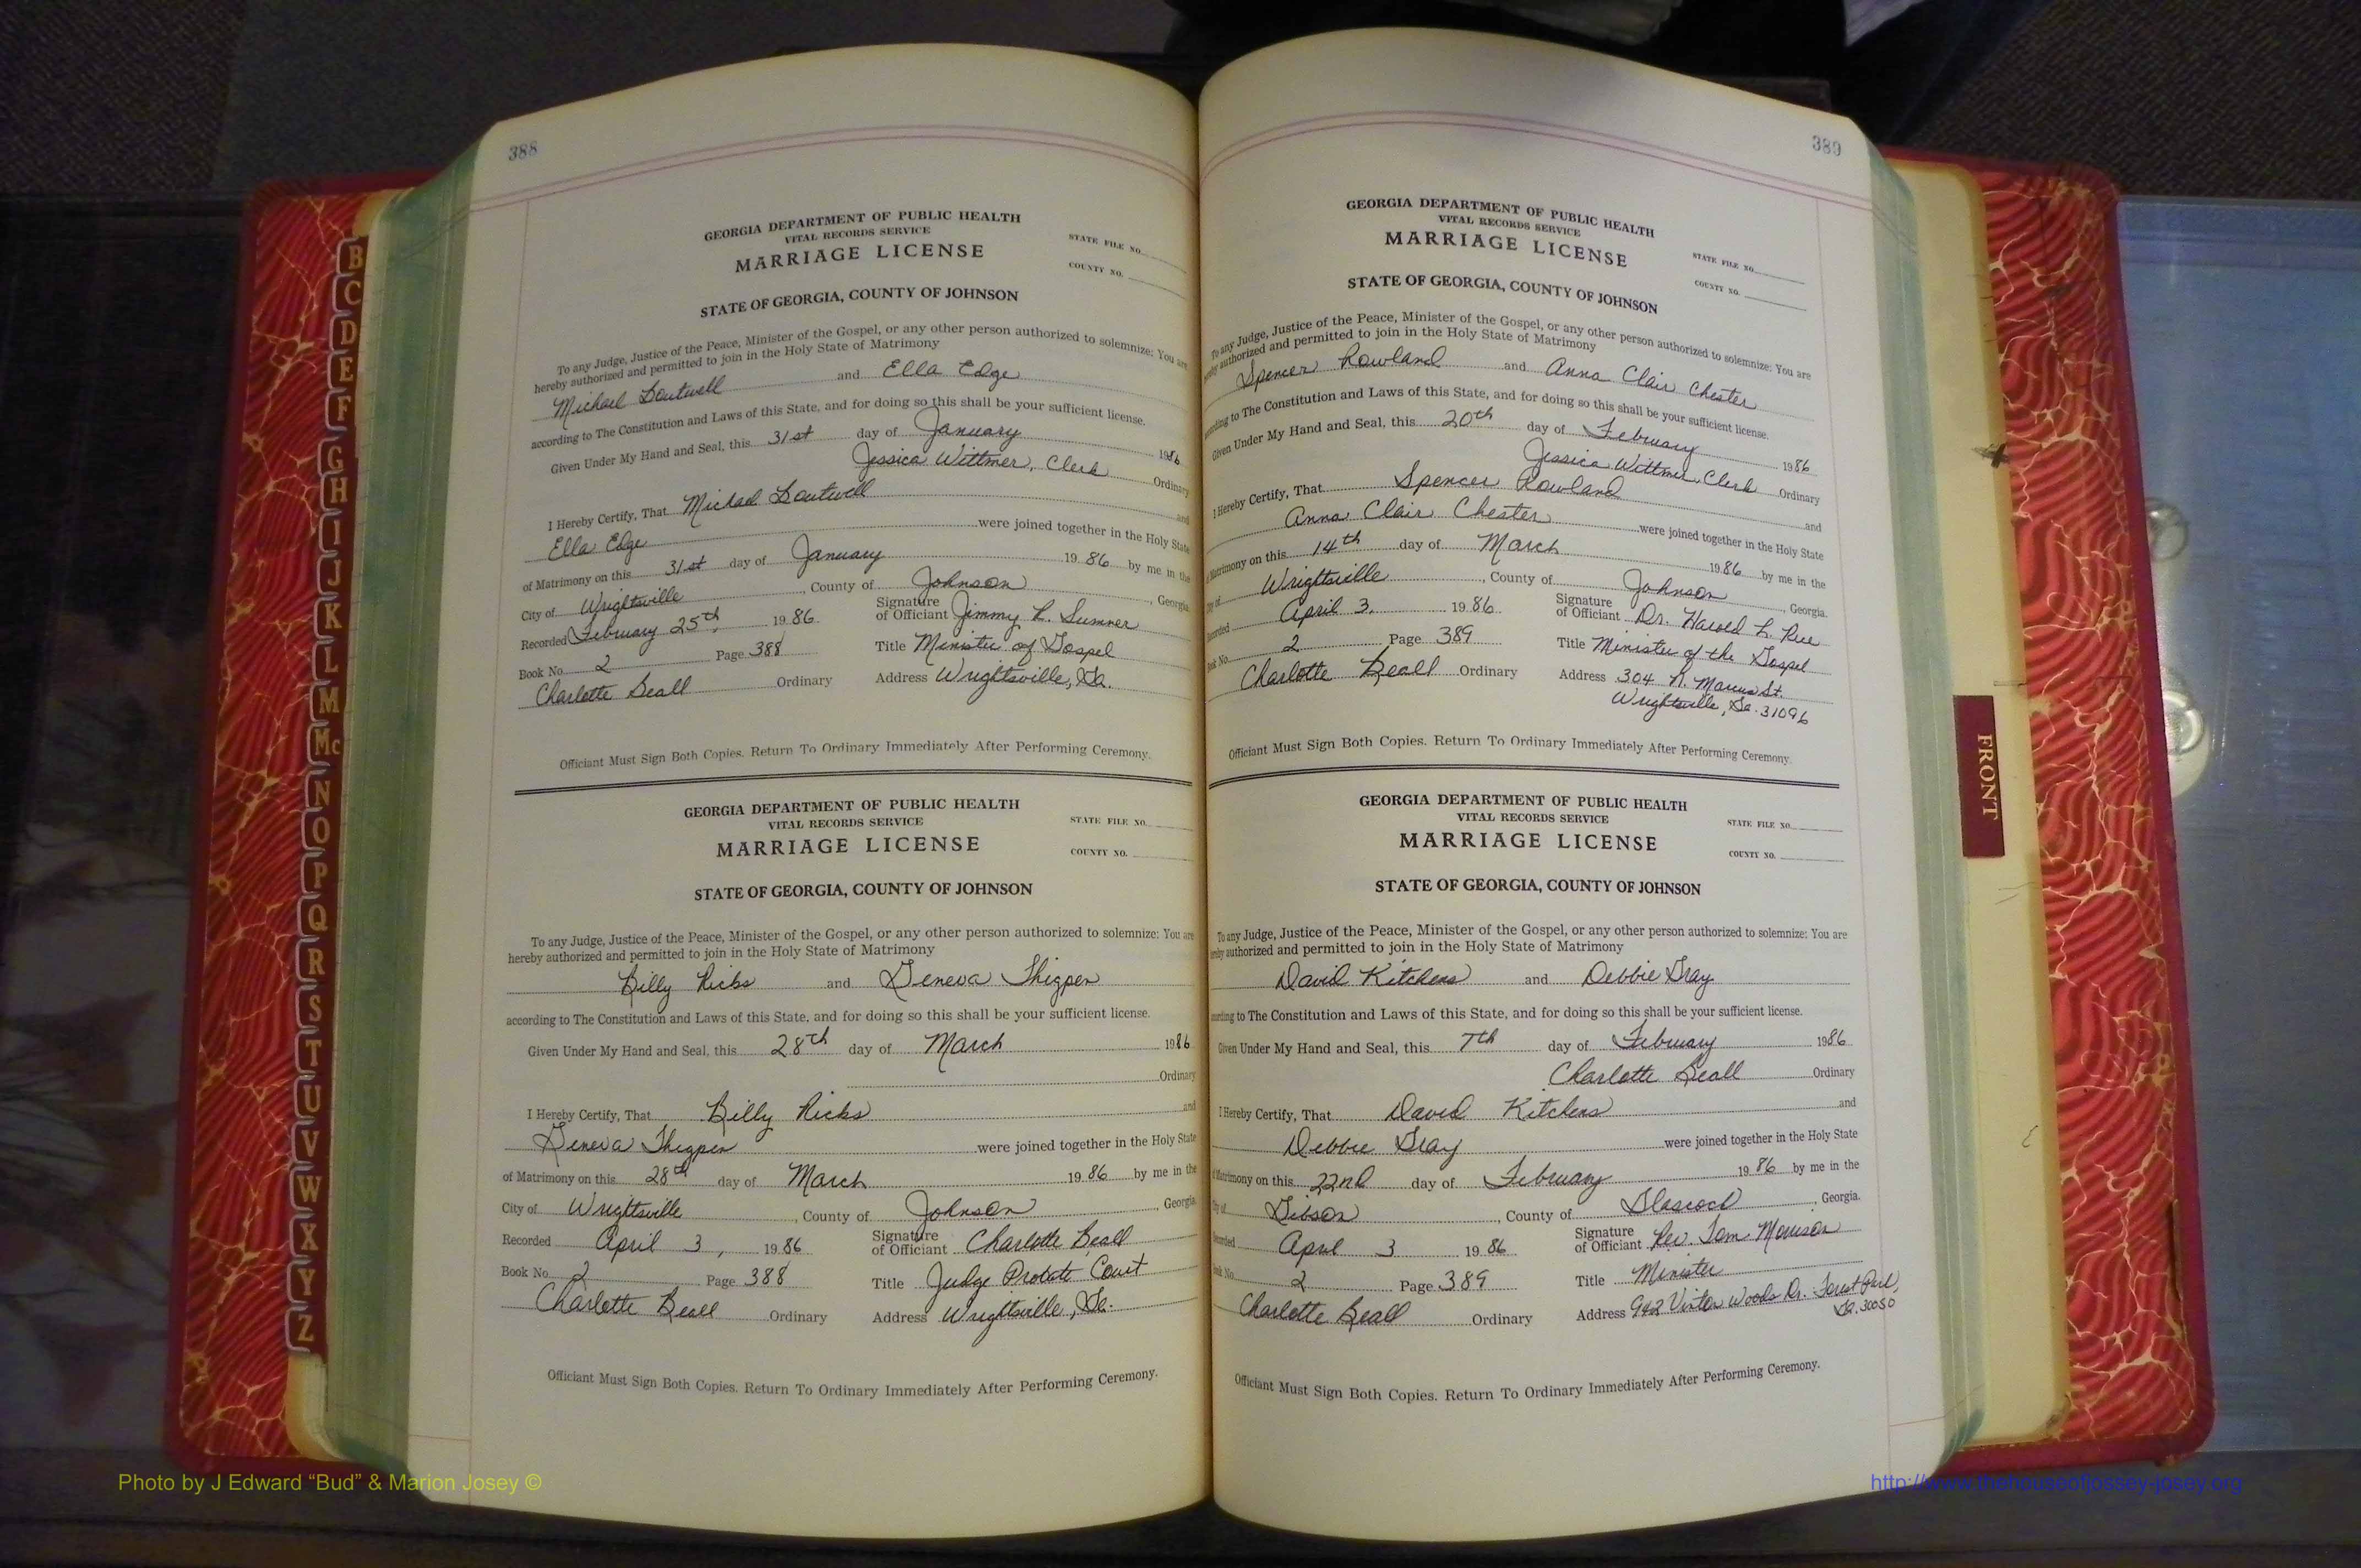 388
GEORGIA DEPARTMENT OF PUBLIC HEALTH
VITAL RECORDS SERVICE
MARRIAGE LICENSE
STATE FILE NO.
COUNTY NO.
STATE OF GEORGIA, COUNTY OF JOHNSON
To any Judge, Justice of the Peace, Minister of the Gospel, or any other person authorized to solemnize: You are
hereby authorized and permitted to join in the Holy State of Matrimony
Michael Boutwell and Ella Edge
according to The Constitution and Laws of this State, and for doing so this shall be your sufficient license.
Given Under My Hand and Seal, this 31st day of January 1986
Jessica Wittmer, Clerk Ordinary
I Hereby Certify, That Michael Boutwell and
Ella Edge were joined together in the Holy State
of Matrimony on this 31st day of January 1986 by me in the
City of Wrightsville, County of Johnson, Georgia
Recorded February 25th, 1986 Signature of Officiant Jimmy R. Sumner
Book No. 2 Page 388 Title Minister of Gospel
Charlotte Beall Ordinary Address Wrightsville, Ga.
Officiant Must Sign Both Copies. Return To Ordinary Immediately After Performing Ceremony.
GEORGIA DEPARTMENT OF PUBLIC HEALTH
VITAL RECORDS SERVICE
MARRIAGE LICENSE
STATE FILE NO.
COUNTY NO.
STATE OF GEORGIA, COUNTY OF JOHNSON
To any Judge, Justice of the Peace, Minister of the Gospel, or any other person authorized to solemnize: You are
hereby authorized and permitted to join in the Holy State of Matrimony
Billy Ricks and Geneva Thigpen
according to The Constitution and Laws of this State, and for doing so this shall be your sufficient license.
Given Under My Hand and Seal, this 28th day of March 1986
Ordinary
I Hereby Certify, That Billy Ricks and
Geneva Thigpen were joined together in the Holy State
of Matrimony on this 28th day of March 1986 by me in the
City of Wrightsville, County of Johnson, Georgia
Recorded April 3, 1986 Signature of Officiant Charlotte Beall
Book No. 2 Page 388 Title Judge Probate Court
Charlotte Beall Ordinary Address Wrightsville, Ga.
Officiant Must Sign Both Copies. Return To Ordinary Immediately After Performing Ceremony.
389
GEORGIA DEPARTMENT OF PUBLIC HEALTH
VITAL RECORDS SERVICE
MARRIAGE LICENSE
STATE FILE NO.
COUNTY NO.
STATE OF GEORGIA, COUNTY OF JOHNSON
To any Judge, Justice of the Peace, Minister of the Gospel, or any other person authorized to solemnize: You are
authorized and permitted to join in the Holy State of Matrimony
Spencer Rowland and Anna Clair Chester
to The Constitution and Laws of this State, and for doing so this shall be your sufficient license.
Given Under My Hand and Seal, this 20th day of February 1986
Jessica Wittmer, Clerk Ordinary
I Hereby Certify, That Spencer Rowland and
Anna Clair Chester were joined together in the Holy State
Matrimony on this 14th day of March 1986 by me in the
Wrightsville, County of Johnson, Georgia.
April 3, 1986 Signature of Officiant Dr. Harold L. Rue
2 Page 389 Title Minister of the Gospel
Charlotte Beall Ordinary Address 304 N. Marcus St.
Wrightsville, Ga. 31096
Officiant Must Sign Both Copies. Return To Ordinary Immediately After Performing Ceremony.
GEORGIA DEPARTMENT OF PUBLIC HEALTH
VITAL RECORDS SERVICE
MARRIAGE LICENSE
STATE FILE NO.
COUNTY NO.
STATE OF GEORGIA, COUNTY OF JOHNSON
To any Judge, Justice of the Peace, Minister of the Gospel, or any other person authorized to solemnize: You are
authorized and permitted to join in the Holy State of Matrimony
David Kitchens and Debbie Gray
to The Constitution and Laws of this State, and for doing so this shall be your sufficient license.
Given Under My Hand and Seal, this 7th day of February 1986
Charlotte Beall Ordinary
I Hereby Certify, That David Kitchens and
Debbie Gray were joined together in the Holy State
Matrimony on this 22nd day of February 1986 by me in the
Gibson, County of Glascock, Georgia.
April 3 1986 Signature of Officiant Rev. Tom Morrison
2 Page 389 Title Minister
Charlotte Beall Ordinary Address 942 Woods Dr. Forest Park,
Ga. 30050
Officiant Must Sign Both Copies. Return To Ordinary Immediately After Performing Ceremony.
B
C
D
E
F
G
H
I
J
K
L
M
Mc
N
O
P
Q
R
S
T
U
V
W
X
Y
Z
FRONT
Photo by J Edward “Bud” & Marion Josey ©
http://www.thehouseofjossey-josey.org